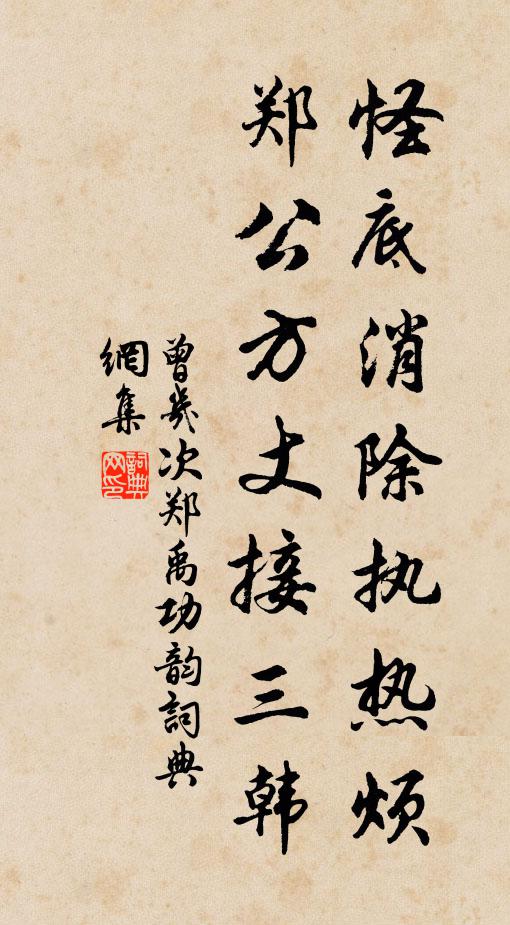 怪底消除执热烦
郑公方丈接三韩
曾几次郑禹功韵词典
網集
詞典网印